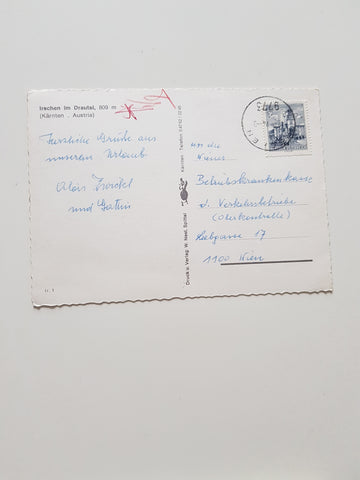 Irschen im Drautal, 809 m
(Kärnten . Austria)
Herzliche Grüße aus
unserem Urlaub
Alois
und Gattin
Druck u. Verlag W. Neel, Spittal
Kärnten Telefon
9773
An die
Wiener
Betriebskrankenkasse
d. Verkehrsbetriebe
(Oberkontrolle)
17
1100 Wien